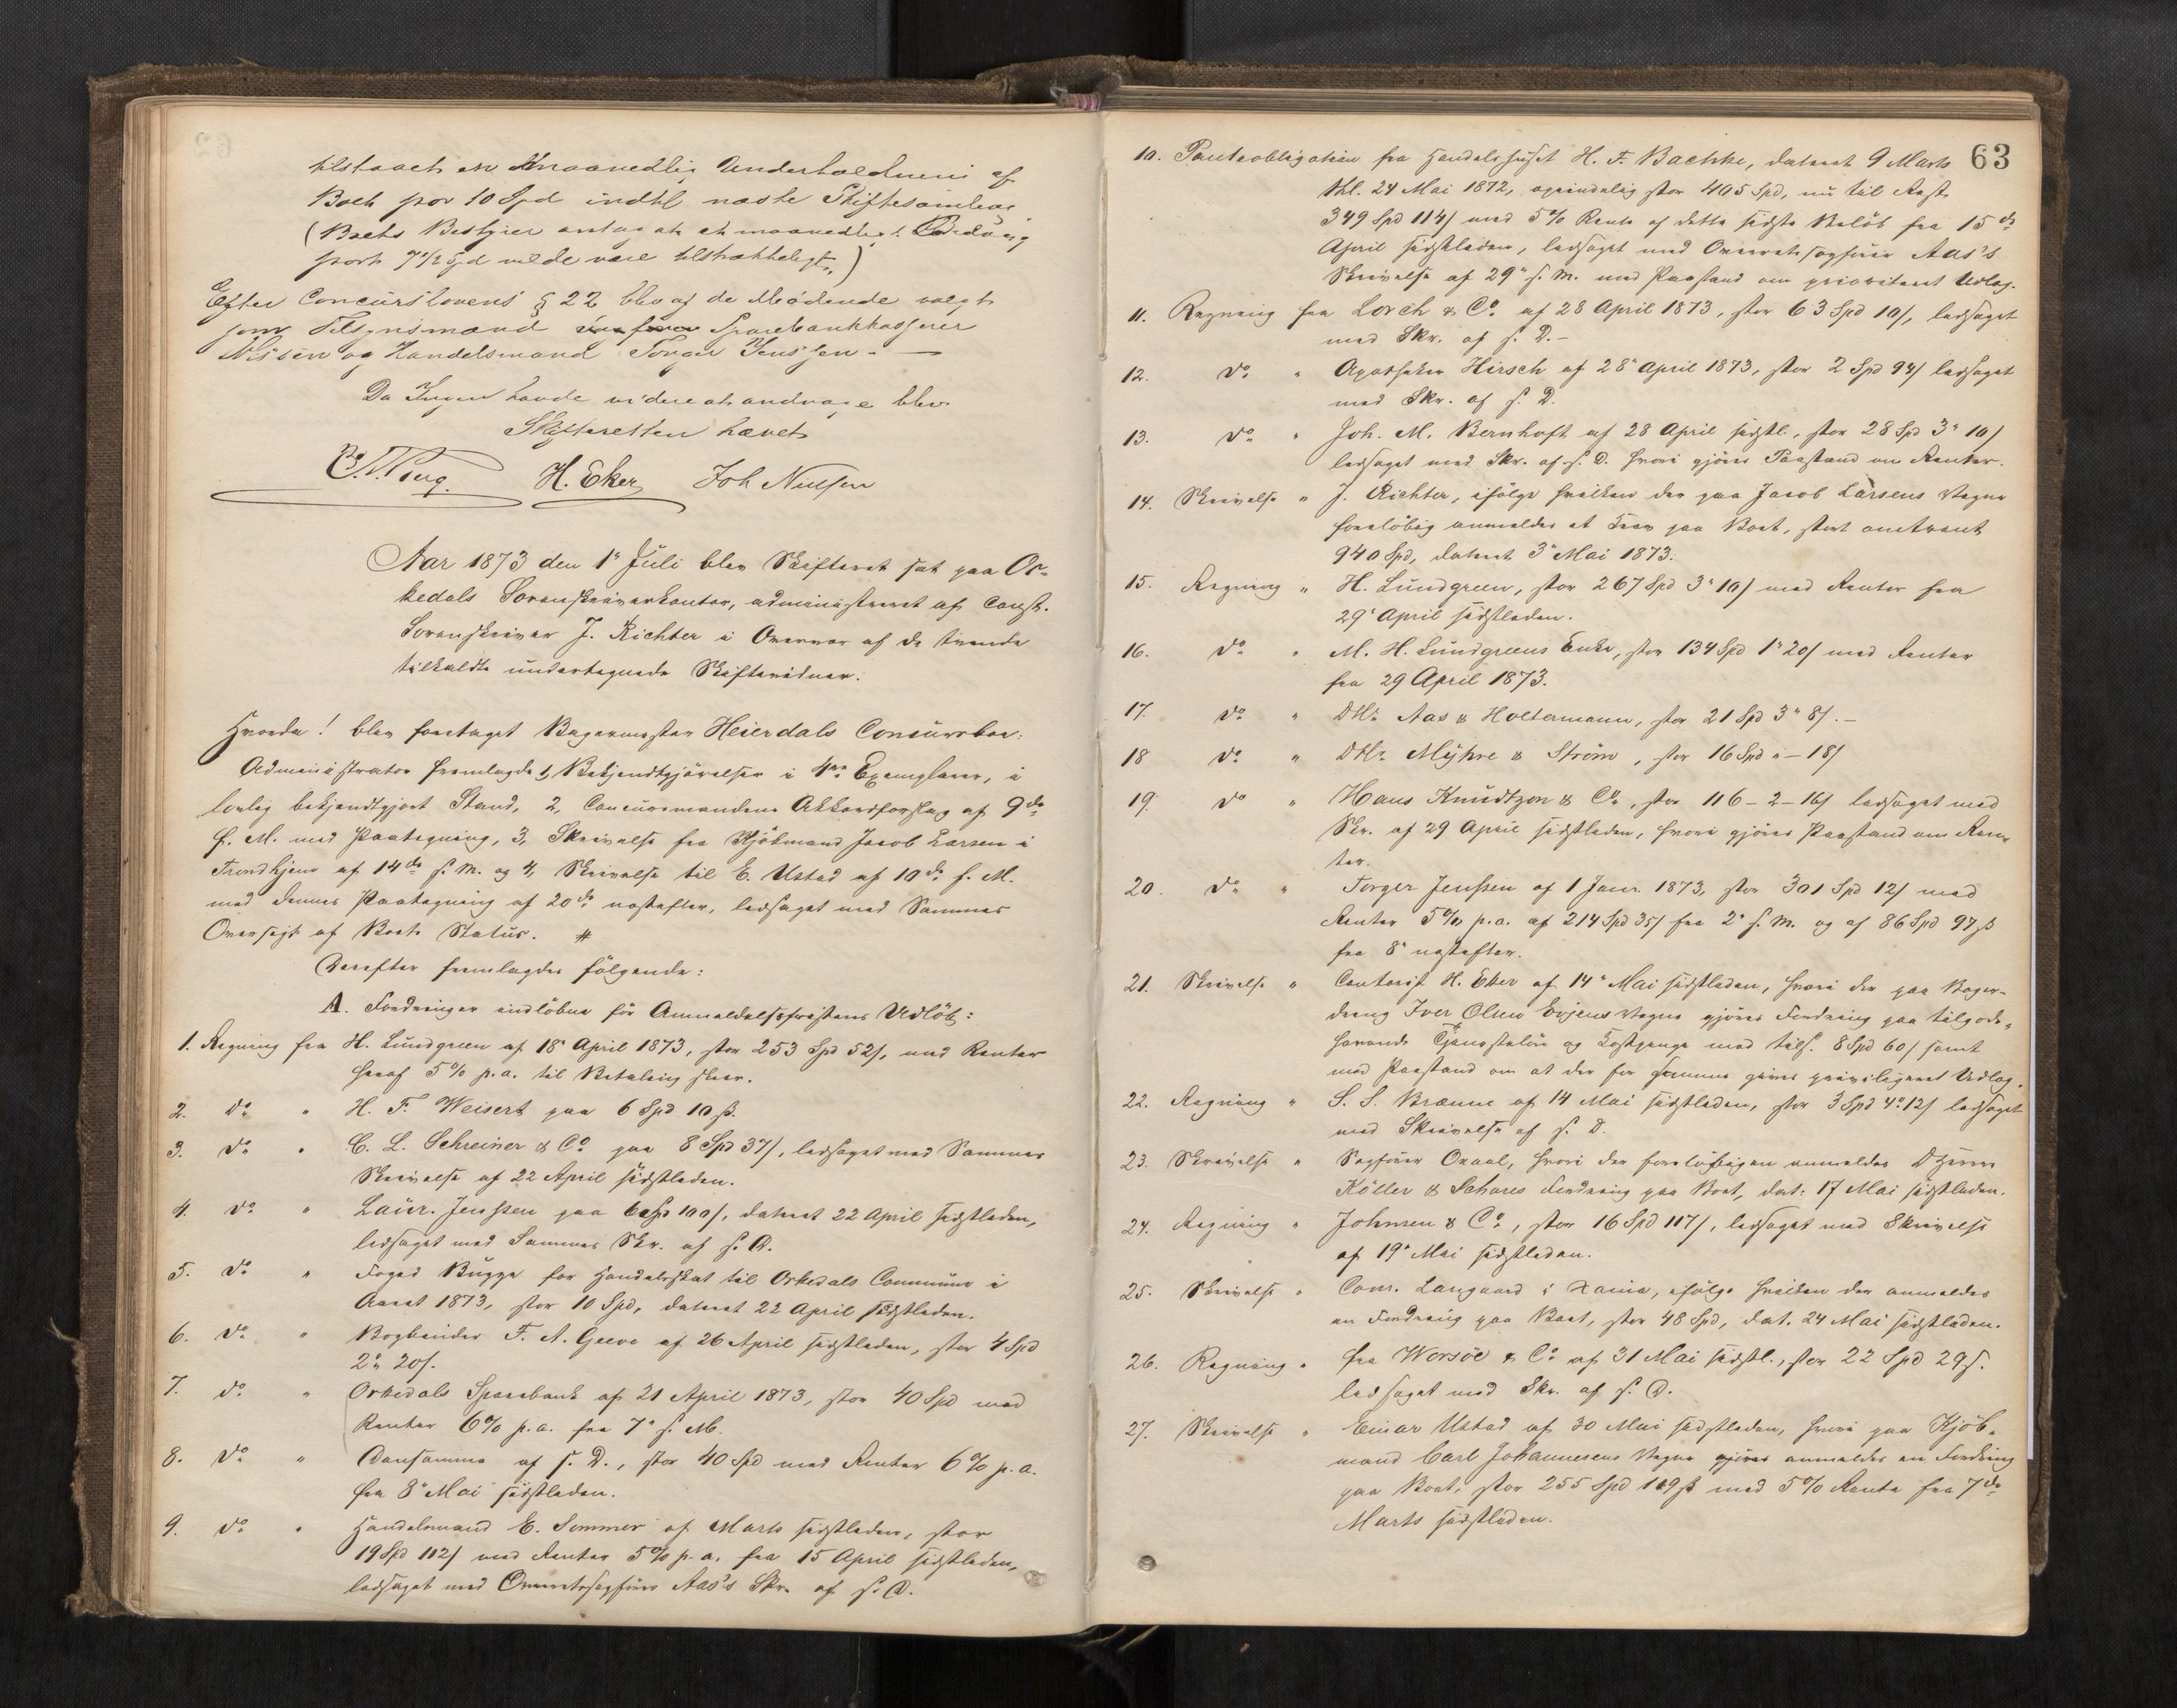 tilstaaet en maanedlig Underholdning af
Boet stor 10 Spd indtil næste Skiftesamling
(Boets Bestyrer antog at et maanedligt Bidrag
stort 7 1/2 Spd vilde være tilstrækkeligt.)
Efter Concurslovens § 22 blev af de Mödende valgt
som Tilsynsmænd Sparebankkasserer
Nissen og Handelsmand Torger Jenssen. —
Da Ingen havde videre at andrage blev
Skifteretten hævet
H. Eker Joh Nielsen
Aar 1873 den 1ste Juli blev Skifteret sat paa Or-
kedals Sorenskriverkontor, administreret af const.
Sorenskriver J. Richter i Overvær af de tvende
tilkaldte undertegnede Skiftevidner.
Hvorda! blev foretaget Bagermester Heierdals Concursbo:
Administrator fremlagde 1, Bekjendtgjörelser i 4re Exemplarer, i
lovlig bekjendtgjort Stand, 2, Concursmandens Akkordforslag af 9de
f. M. med Paategning, 3, Skrivelse fra Kjöbmand Jacob Larsen i
Trondhjem af 14de s. M. og 4, Skrivelse til E. Ustad af 10de s. M.
med dennes Paategning af 20de næstefter, ledsaget med Sammes
Oversigt af Boets Status. #
Derefter fremlagdes fölgende:
A. Fordringer indlöbne för Anmeldelsesfristens Udlöb:
1. Regning fra H. Lundgreen af 18de April 1873, stor 253 Spd 52 s, med Renter
heraf 5 % p. a. til Betaling skeer.
2. Do " H. F. Weisert paa 6 Spd 10 ß.
3. Do " C. L. Schreiner & Co paa 8 Spd 37 s, ledsaget med Sammes
Skrivelse af 22 April sidstleden.
4. Do " Laur. Jenssen paa 6 Spd 100 s, dateret 22 April sidstleden,
ledsaget med Sammes Skr. af s. D.
5. Do " Foged Bugge for Handelsskat til Orkedals Commune i
Aaret 1873, stor 10 Spd, dateret 22 April sidstleden.
6. Do " Bogbinder F. A. Greve af 26 April sidstleden, stor 4 Spd
2 " 20 s.
7. Do " Orkedals Sparebank af 21 April 1873, stor 40 Spd med
Renter 6 % p. a. fra 7de s. M.
8. Do " Densamme af s. D., stor 40 Spd med Renter 6 % p. a.
fra 8de Mai sidstleden.
9. Do " Handelsmand E. Sommer af Marts sidstleden, stor
19 Spd 112 s med Renter 5 % p. a. fra 15 April sidstleden,
ledsaget med Overretssagförer Aas's Skr. af s. D.
63
10. Panteobligation fra Handelshuset H. F. Bachke, dateret 9 Marts
thl. 24 Mai 1872, oprindelig stor 405 Spd, nu til Rest
349 Spd 114 s med 5 % Rente af dette sidste Belöb fra 15de
April sidstleden, ledsaget med Overretssagförer Aas's
Skrivelse af 29de s. M. med Paastand om prioriteret Udlæg.
11. Regning fra Lorch & Co af 28 April 1873, stor 63 Spd 10 s, ledsaget
med Skr. af s. D. –
12. Do " Apotheker Hirsch af 28de April 1873, stor 2 Spd 94 s ledsaget
med Skr. af s. D.
13. Do " Joh. M. Bernhoft af 28 April sidstl., stor 28 Spd 3 " 10 s
ledsaget med Skr. af s. D. hvori gjöres Paastand om Renter.
14. Skrivelse " J. Richter, ifölge hvilken der paa Jacob Larsens Vegne
foreløbig anmeldes et Krav paa Boet, stort omtrent
940 Spd, dateret 3de Mai 1873.
15. Regning " H. Lundgreen, stor 267 Spd 3 " 10 s med Renter fra
29de April sidstleden.
16. Do " M. H. Lundgreens Enke, stor 134 Spd 1 " 20 s med Renter
fra 29 April 1873.
17. Do " DHr. Aas & Holtermann, stor 21 Spd 3 " 8 s. –
18 Do " DHr. Myhre & Ström, stor 16 Spd " – 18 s
19. Do " Hans Knudtzon & Co, stor 116 – 2 – 16 s ledsaget med
Skr. af 29 April sidstleden, hvori gjöres Paastand om Ren-
ter.
20. Do " Torger Jenssen af 1 Janr. 1873, stor 301 Spd 12 s med
Renter 5 % p. a. af 214 Spd 35 s fra 2de s. M. og af 86 Spd 97 ß
fra 8de næstefter.
21. Skrivelse " Contorist H. Eker af 14de Mai sidstleden, hvori der paa Bager-
dreng Iver Olsen Evjens Vegne gjöres Fordring paa tilgode-
havende Tjenesteløn og Kostpenge med tils. 8 Spd 60 s samt
med Paastand om at der for samme gives privilegeret Udlæg.
22. Regning " S. S. Brænne af 14 Mai sidstleden, stor 3 Spd 4 " 12 s ledsaget
med Skrivelse af s. D.
23. Skrivelse " Sagförer Oxaal, hvori der foreløbigen anmeldes DHerrer
Köller & Schares Fordring paa Boet, dat: 17 Mai sidstleden.
24. Regning " Johnsen & Co, stor 16 Spd 117 s, ledsaget med Skrivelse
af 19de Mai sidstleden.
25. Skrivelse " Conr. Langaard i Xania, ifölge hvilken der anmeldes
en Fordring paa Boet, stor 48 Spd, dat. 24 Mai sidstleden.
26. Regning " fra Worsöe & Co af 31 Mai sidstl., stor 22 Spd 29 s.
ledsaget med Skr. af s. D.
27. Skrivelse " Einar Ustad af 30 Mai sidstleden, hvori paa Kjöb-
mand Carl Johannesens Vegne anmeldes en Fordring
paa Boet, stor 255 Spd 119 ß med 5 % Rente fra 7de
Marts sidstleden.